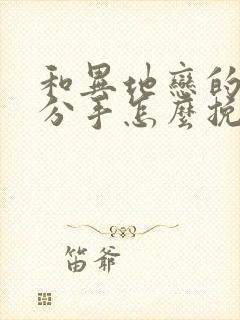 和異地戀的
分手怎麼挽
笛爺